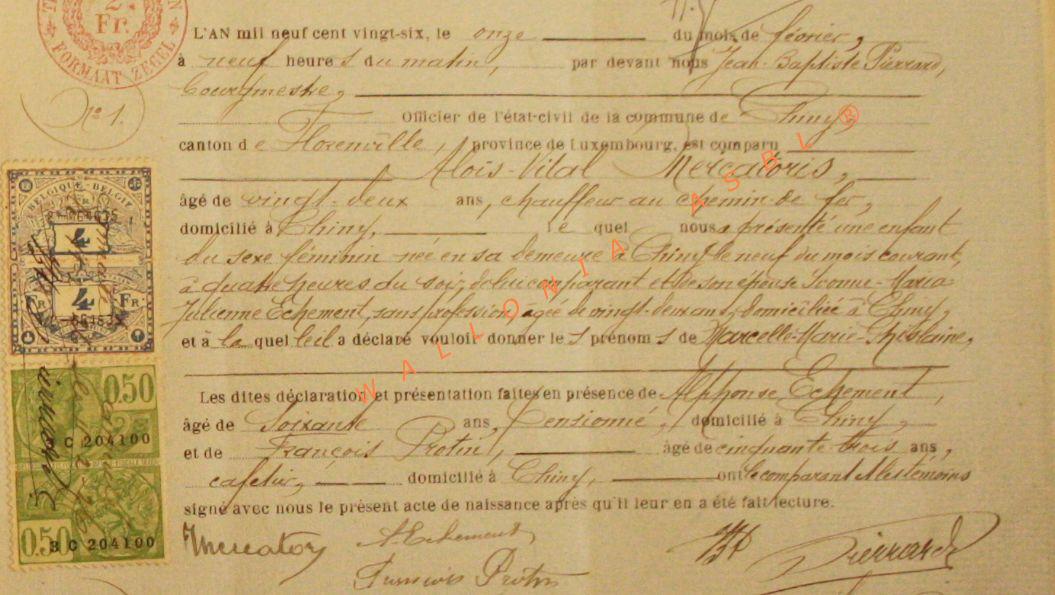 Fr.
FORMAAT ZEGEL
L'AN mil neuf cent vingt-six, le onze du mois de février,
à neuf heures du matin, par devant nous Jean-Baptiste Pierrard,
Bourgmestre,
N° 1.
Officier de l'état-civil de la commune de Chiny
canton de Florenville, province de Luxembourg, est comparu
Aloïs-Vital Mercatoris,
âgé de vingt-deux ans, chauffeur au chemin de fer,
domicilié à Chiny, lequel nous a présenté une enfant
du sexe féminin née en sa demeure à Chiny le neuf du mois courant,
à quatre heures du soir, de lui comparant et de son épouse Yvonne-Maria
Julienne Echement, sans profession, agée de vingt-deux ans, domiciliée à Chiny,
et à laquelle il a déclaré vouloir donner les prénoms de Marcelle-Marie-Ghislaine,
Les dites déclaration et présentation faites en présence de Alphonse Echement,
âgé de Soixante ans, Pensionné, domicilié à Chiny,
et de François Protin, âgé de cinquante-trois ans,
cafetier, domicilié à Chiny, ont le comparant et les témoins
signé avec nous le présent acte de naissance après qu'il leur en a été fait lecture.
Mercatoris A Echement Pierrard
François Protin
BELGIQUE-BELGIË
4
FR 4 FR
0.50
C 204100
0.50
B C 204100
WALLONIA ASBL®